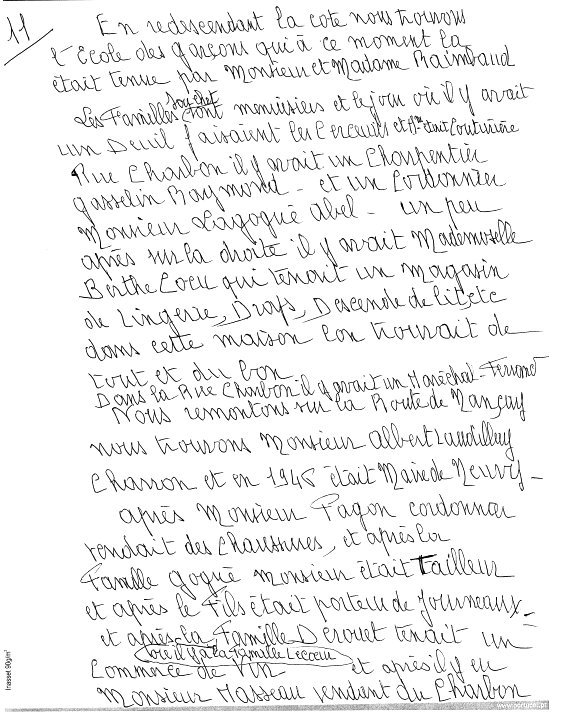 11
En redescendant la cote nous trouvons
l'Ecole des garçons qui à ce moment la
était tenue par Monsieur et Madame Raimbaud
Les Familles Souchet sont menuisiers et le jour où il y avait
un Deuil faisaient les Cercueils et Mme était Couturière
Rue Charbon il y avait un Charpentier
gasselin Raymond - et un Cordonnier
Monsieur Lagogué Abel - un peu
après sur la droite il y avait Mademoselle
Berthe Cocu qui tenait un magasin
de Lingerie, Draps, Descende de lit, etc
dans cette maison l'on trouvait de
tout et du bon
Dans la Rue Charbon il y avait un Maréchal-Ferrant
Nous remontons sur la Route de Nançay
nous trouvons Monsieur Albert
Charron et en 1945 était Maire de Neuvy -
après Monsieur Pagon cordonnier
vendait des Chaussures, et après la
Famille gogué Monsieur était Tailleur
et après le Fils était porteur de Journeaux -
et après la Famille Derouet tenait un
(ou il y a la Famille Lecoeu)
Commerce de Vin et après il y eu
Monsieur Masseau vendent du Charbon
Inasset 90g/m²
www.portucel.pt